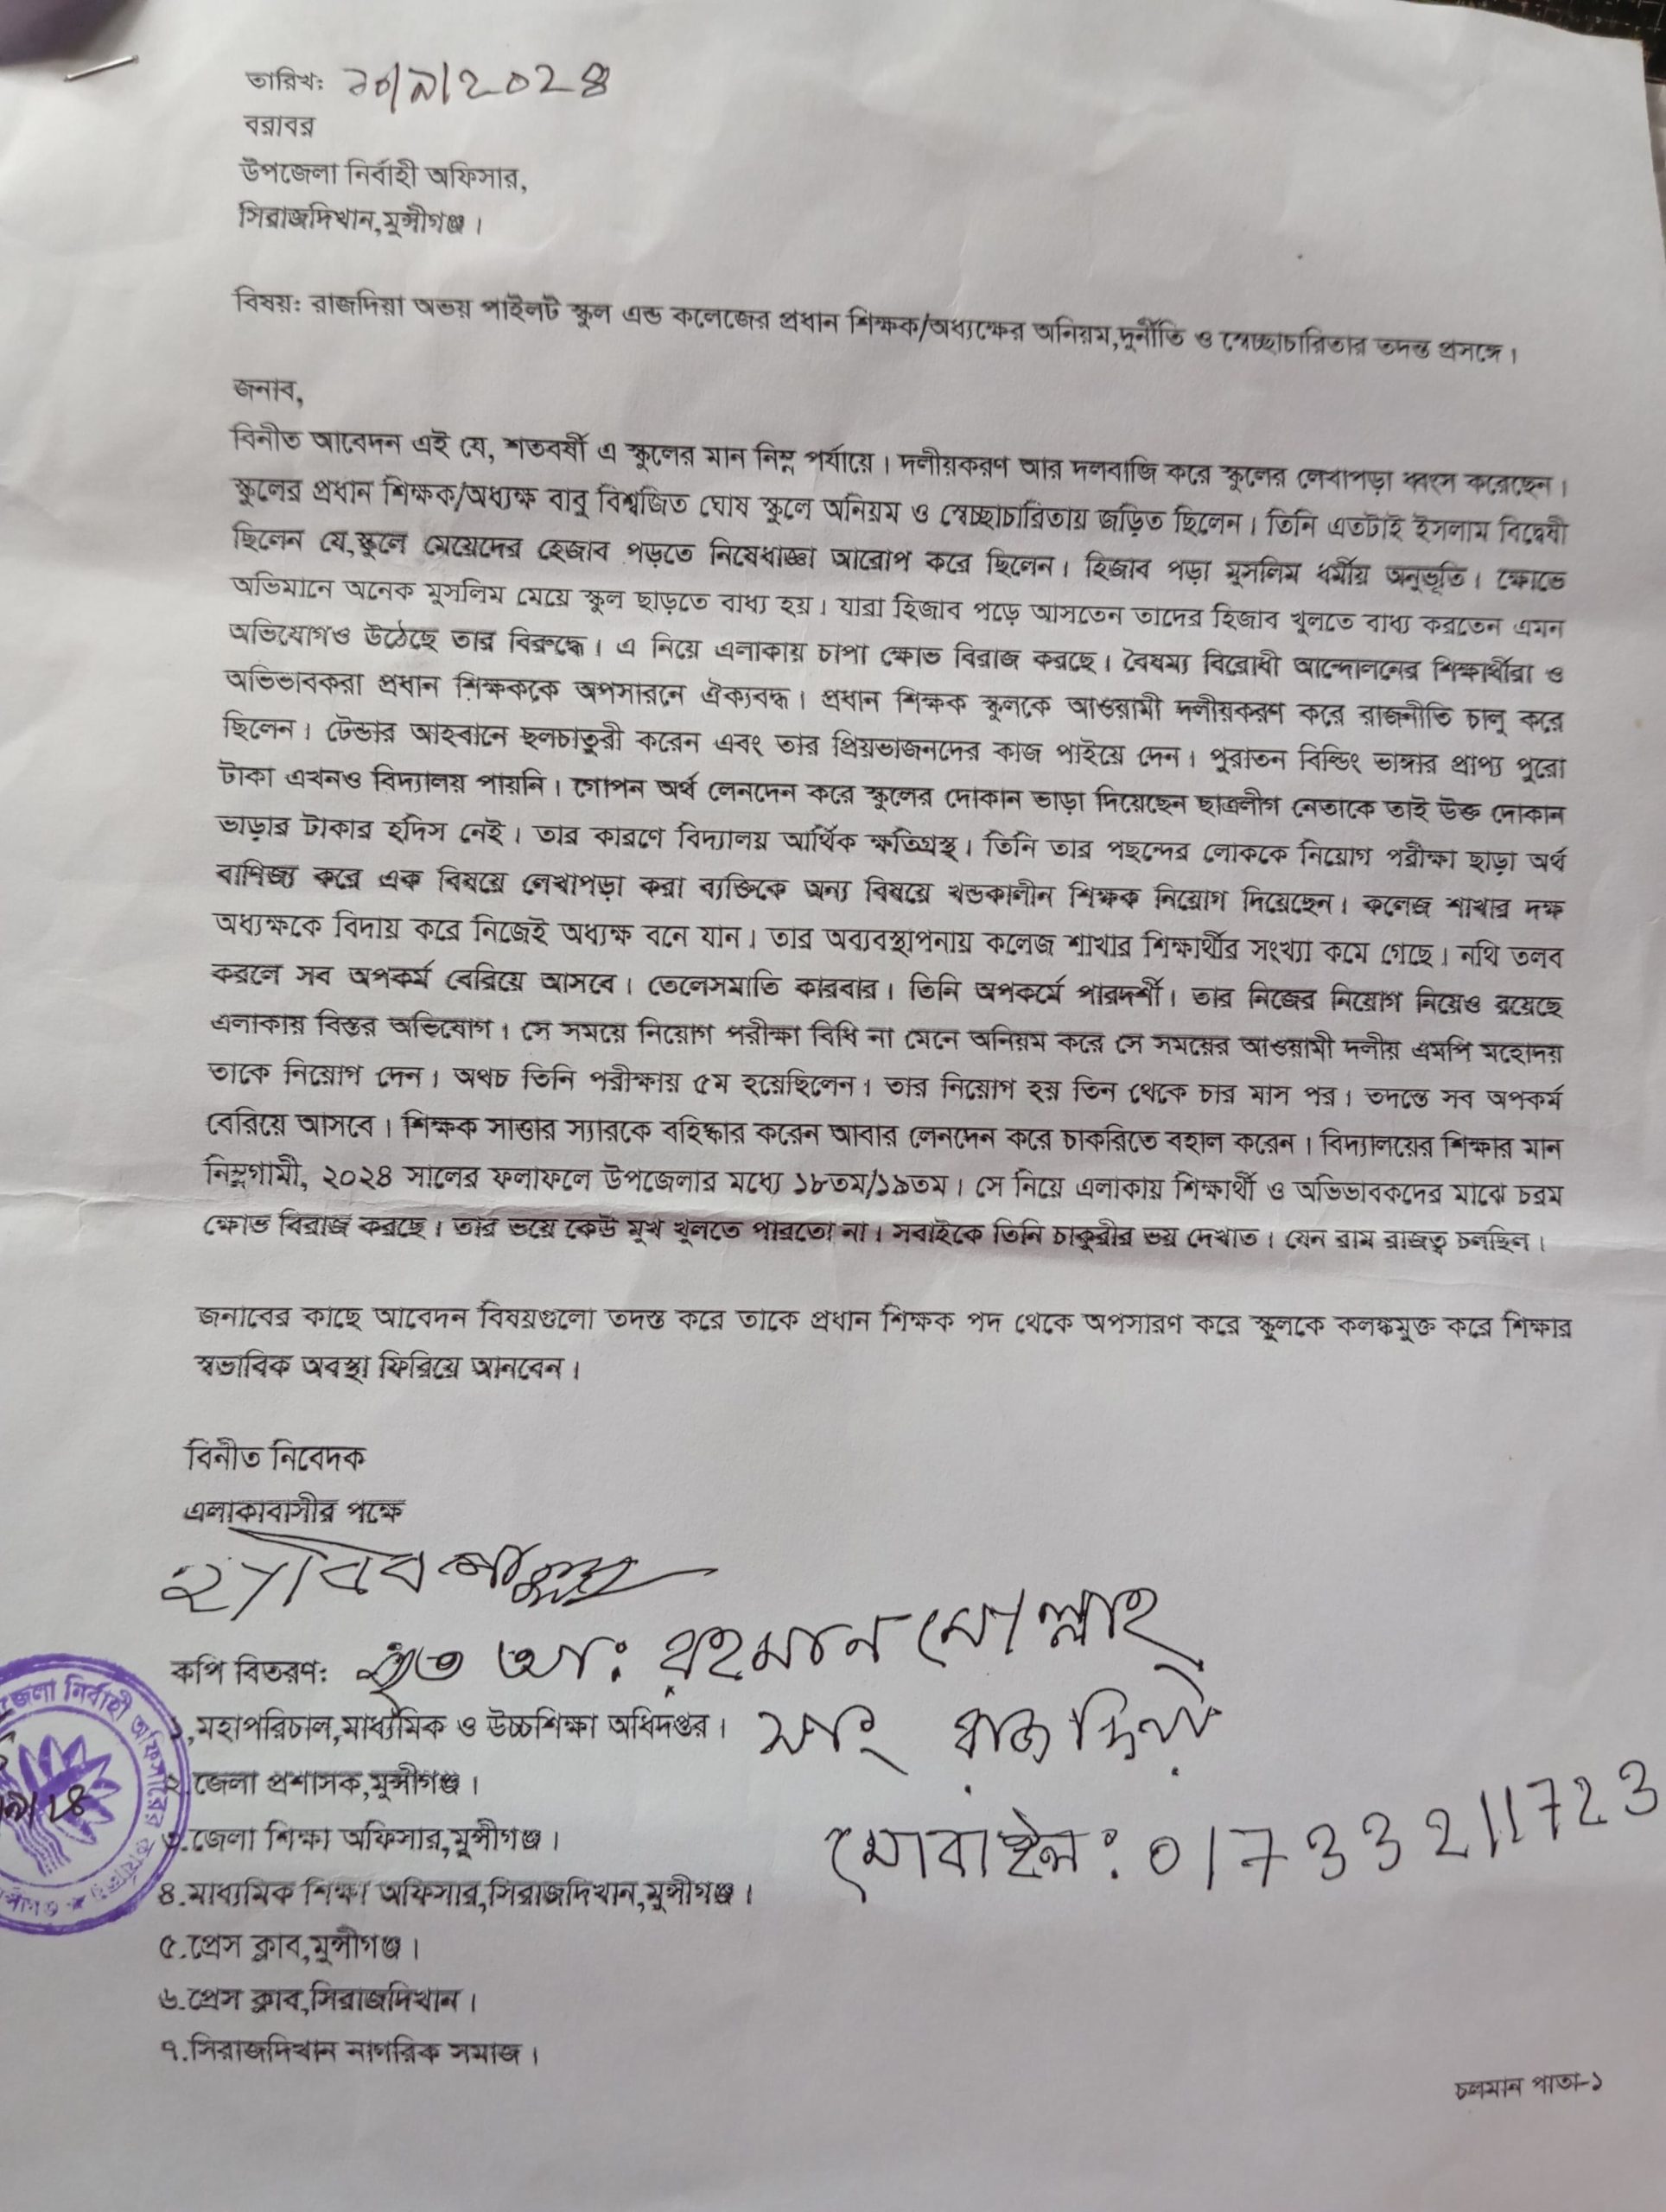 তারিখ: ১০/৯/২০২৪
বরাবর
উপজেলা নির্বাহী অফিসার,
সিরাজদিখান,মুন্সীগঞ্জ।
বিষয়: রাজদিয়া অভয় পাইলট স্কুল এন্ড কলেজের প্রধান শিক্ষক/অধ্যক্ষের অনিয়ম,দুর্নীতি ও স্বেচ্ছাচারিতার তদন্ত প্রসঙ্গে।
জনাব,
বিনীত আবেদন এই যে, শতবর্ষী এ স্কুলের মান নিম্ন পর্যায়ে। দলীয়করণ আর দলবাজি করে স্কুলের লেখাপড়া ধ্বংস করেছেন।
স্কুলের প্রধান শিক্ষক/অধ্যক্ষ বাবু বিশ্বজিত ঘোষ স্কুলে অনিয়ম ও স্বেচ্ছাচারিতায় জড়িত ছিলেন। তিনি এতটাই ইসলাম বিদ্বেষী
ছিলেন যে,স্কুলে মেয়েদের হেজাব পড়তে নিষেধাজ্ঞা আরোপ করে ছিলেন। হিজাব পড়া মুসলিম ধর্মীয় অনুভূতি। ক্ষোভে
অভিমানে অনেক মুসলিম মেয়ে স্কুল ছাড়তে বাধ্য হয়। যারা হিজাব পড়ে আসতেন তাদের হিজাব খুলতে বাধ্য করতেন এমন
অভিযোগও উঠেছে তার বিরুদ্ধে। এ নিয়ে এলাকায় চাপা ক্ষোভ বিরাজ করছে। বৈষম্য বিরোধী আন্দোলনের শিক্ষার্থীরা ও
অভিভাবকরা প্রধান শিক্ষককে অপসারনে ঐক্যবদ্ধ। প্রধান শিক্ষক স্কুলকে আওয়ামী দলীয়করণ করে রাজনীতি চালু করে
ছিলেন। টেন্ডার আহবানে ছলচাতুরী করেন এবং তার প্রিয়ভাজনদের কাজ পাইয়ে দেন। পুরাতন বিল্ডিং ভাঙ্গার প্রাপ্য পুরো
টাকা এখনও বিদ্যালয় পায়নি। গোপন অর্থ লেনদেন করে স্কুলের দোকান ভাড়া দিয়েছেন ছাত্রলীগ নেতাকে তাই উক্ত দোকান
ভাড়ার টাকার হদিস নেই। তার কারণে বিদ্যালয় আর্থিক ক্ষতিগ্রস্থ। তিনি তার পছন্দের লোককে নিয়োগ পরীক্ষা ছাড়া অর্থ
বাণিজ্য করে এক বিষয়ে লেখাপড়া করা ব্যক্তিকে অন্য বিষয়ে খন্ডকালীন শিক্ষক নিয়োগ দিয়েছেন। কলেজ শাখার দক্ষ
অধ্যক্ষকে বিদায় করে নিজেই অধ্যক্ষ বনে যান। তার অব্যবস্থাপনায় কলেজ শাখার শিক্ষার্থীর সংখ্যা কমে গেছে। নথি তলব
করলে সব অপকর্ম বেরিয়ে আসবে। তেলেসমাতি কারবার। তিনি অপকর্মে পারদর্শী। তার নিজের নিয়োগ নিয়েও রয়েছে
এলাকায় বিস্তর অভিযোগ। সে সময়ে নিয়োগ পরীক্ষা বিধি না মেনে অনিয়ম করে সে সময়ের আওয়ামী দলীয় এমপি মহোদয়
তাকে নিয়োগ দেন। অথচ তিনি পরীক্ষায় ৫ম হয়েছিলেন। তার নিয়োগ হয় তিন থেকে চার মাস পর। তদন্তে সব অপকর্ম
বেরিয়ে আসবে। শিক্ষক সাত্তার স্যারকে বহিষ্কার করেন আবার লেনদেন করে চাকরিতে বহাল করেন। বিদ্যালয়ের শিক্ষার মান
নিম্নগামী, ২০২৪ সালের ফলাফলে উপজেলার মধ্যে ১৮তম/১৯তম। সে নিয়ে এলাকায় শিক্ষার্থী ও অভিভাবকদের মাঝে চরম
ক্ষোভ বিরাজ করছে। তার ভয়ে কেউ মুখ খুলতে পারতো না। সবাইকে তিনি চাকুরীর ভয় দেখাত। যেন রাম রাজত্ব চলছিল।
জনাবের কাছে আবেদন বিষয়গুলো তদন্ত করে তাকে প্রধান শিক্ষক পদ থেকে অপসারণ করে স্কুলকে কলঙ্কমুক্ত করে শিক্ষার
স্বভাবিক অবস্থা ফিরিয়ে আনবেন।
বিনীত নিবেদক
এলাকাবাসীর পক্ষে
মৃত আ: রহমান মোল্লাহ
কপি বিতরণ:
১,মহাপরিচাল,মাধ্যমিক ও উচ্চশিক্ষা অধিদপ্তর।
সাং রাজদিয়া
২.জেলা প্রশাসক,মুন্সীগঞ্জ।
মোবাইল: 01733211723
৩.জেলা শিক্ষা অফিসার,মুন্সীগঞ্জ।
৪.মাধ্যমিক শিক্ষা অফিসার,সিরাজদিখান,মুন্সীগঞ্জ।
৫.প্রেস ক্লাব,মুন্সীগঞ্জ।
৬.প্রেস ক্লাব,সিরাজদিখান।
৭.সিরাজদিখান নাগরিক সমাজ।
জেলা নির্বাহী অফিসারের কার্যালয়
চলমান পাতা-১